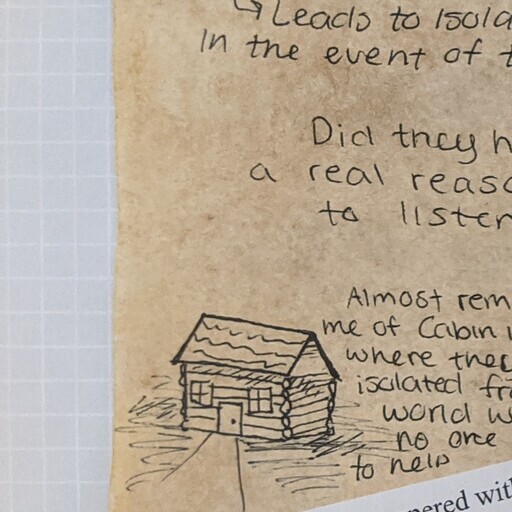 ↳ Leads to Isola
In the event of t
Did they h
a real reaso
to listen
Almost rem
me of Cabin i
where they
isolated fr
world w
no one
to help
pered with